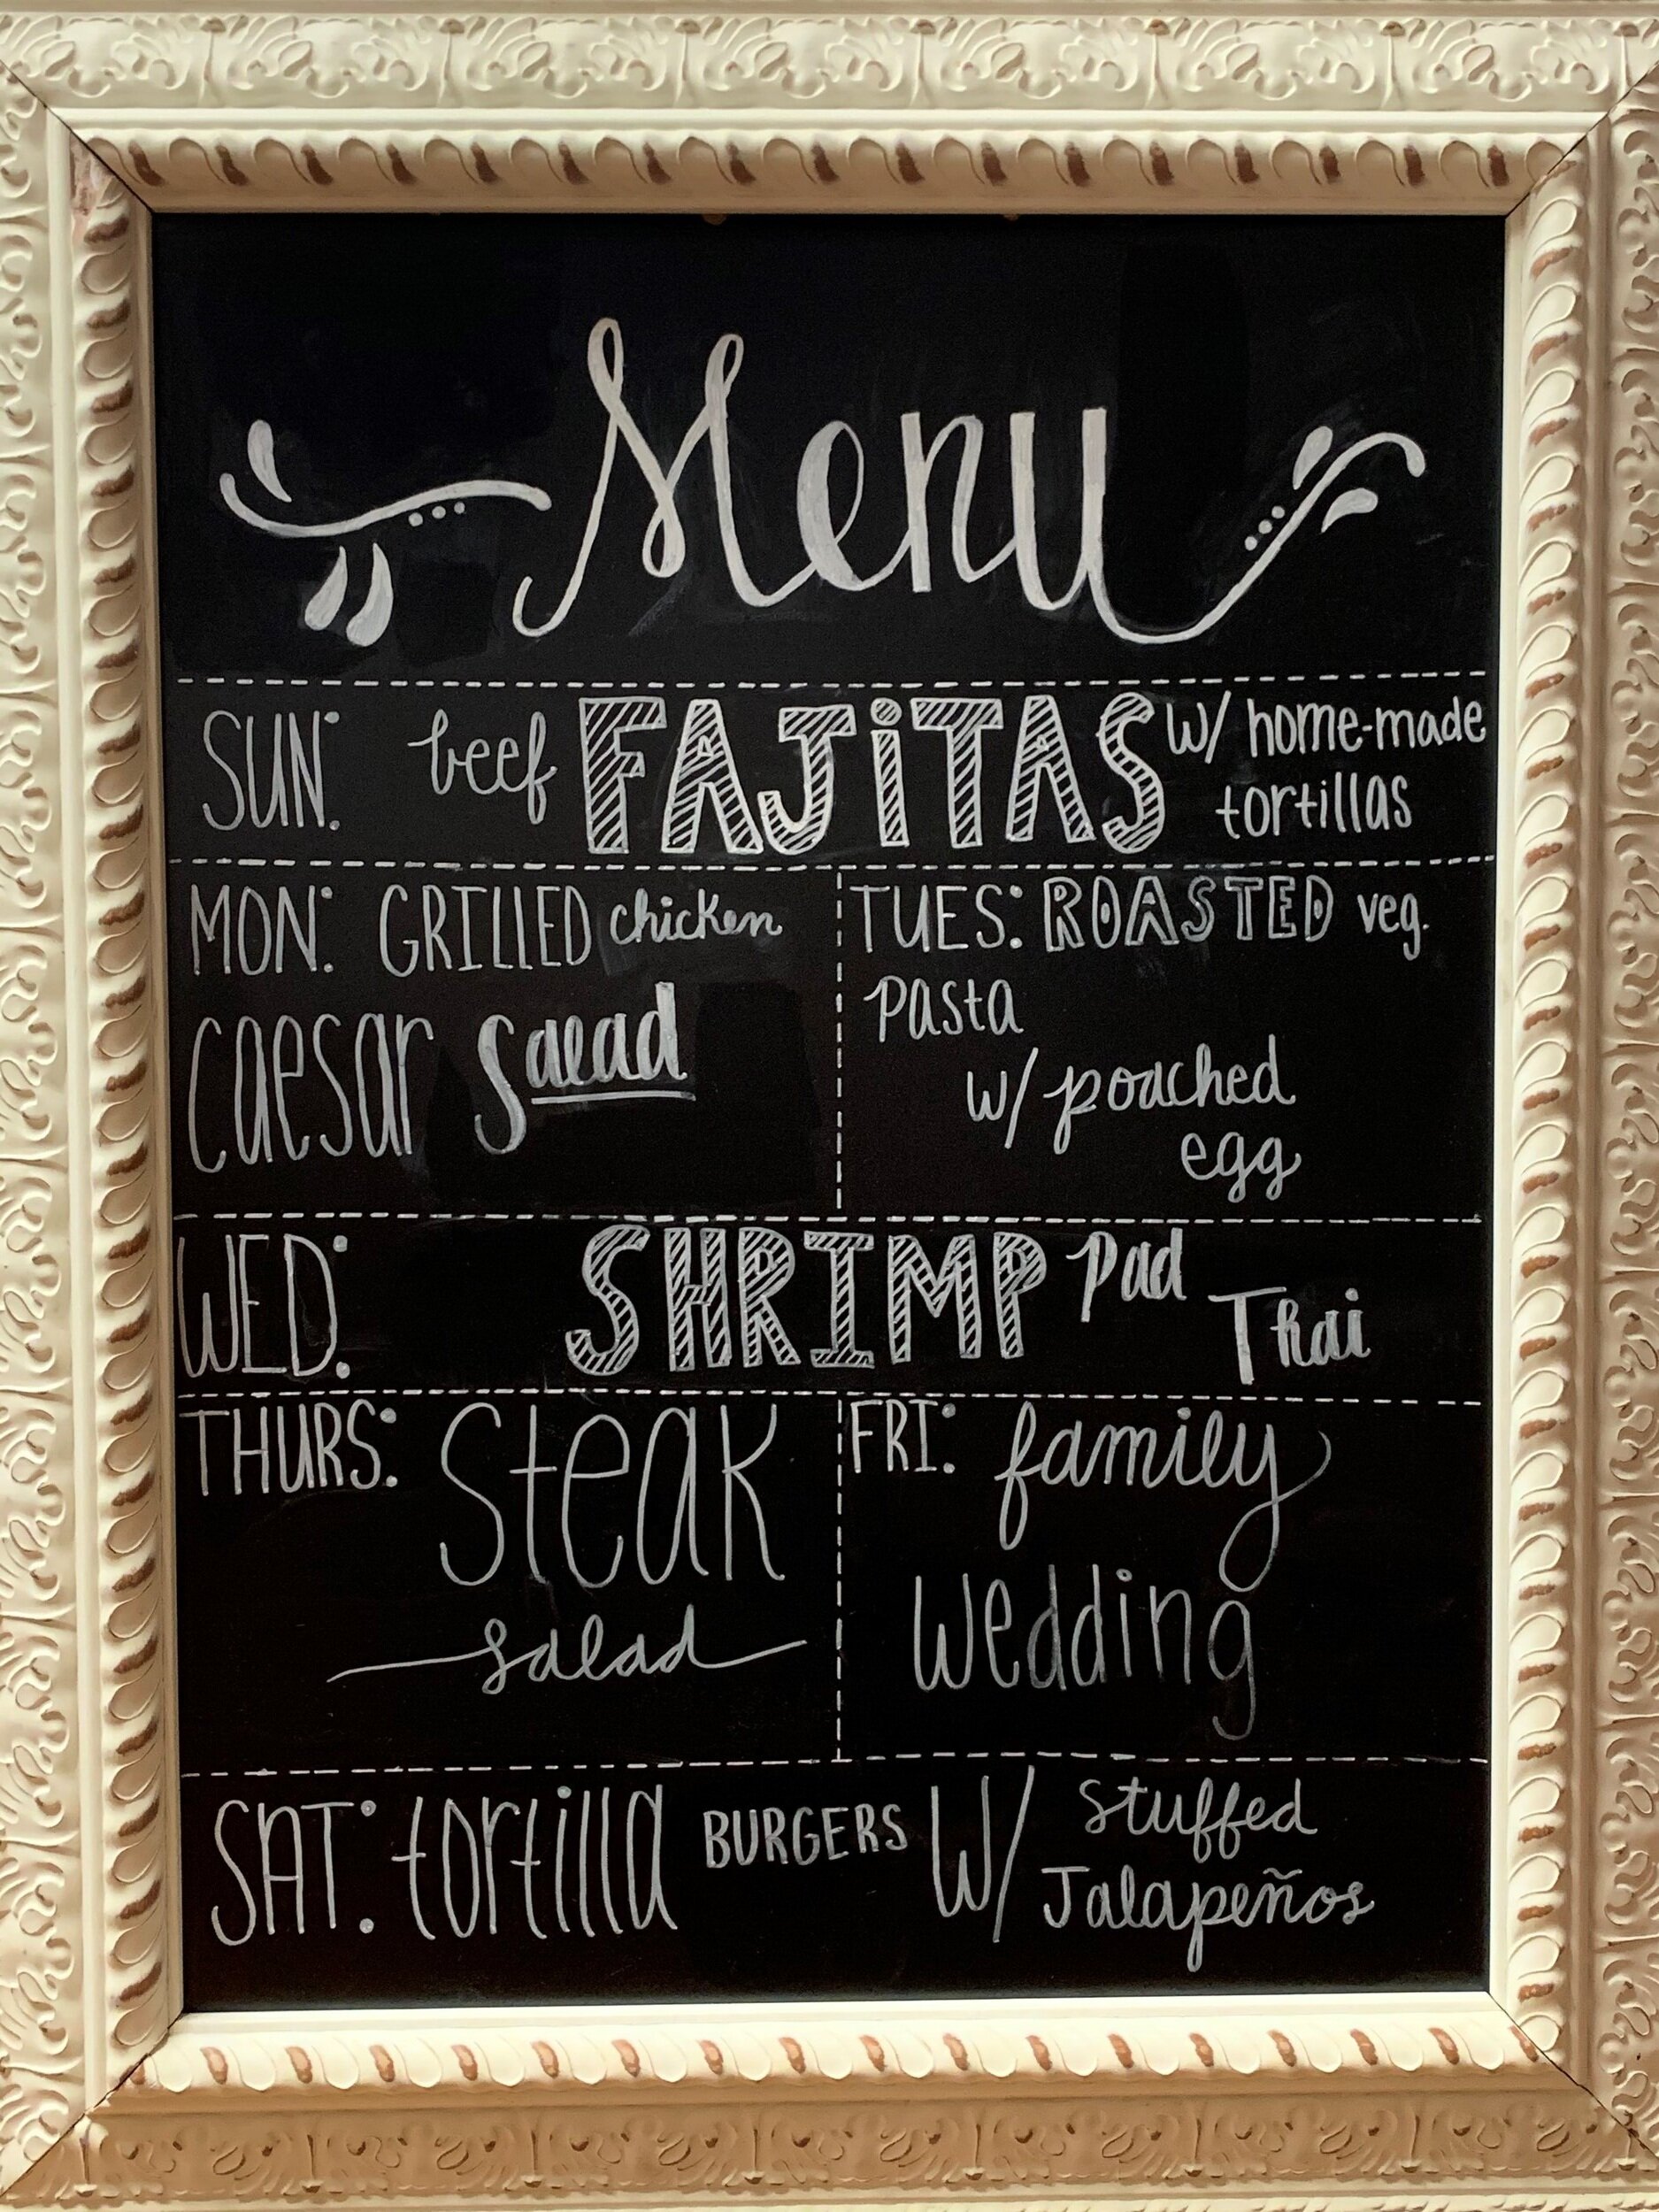 Menu
SUN: beef FAJiTAS w/ home-made
tortillas
MON: GRILLED chicken
caesar salad
TUES: ROASTED veg.
pasta
w/ poached
egg
WED: SHRIMP Pad
Thai
THURS: steak
salad
FRI: family
wedding
SAT: tortilla BURGERS w/ stuffed
Jalapeños